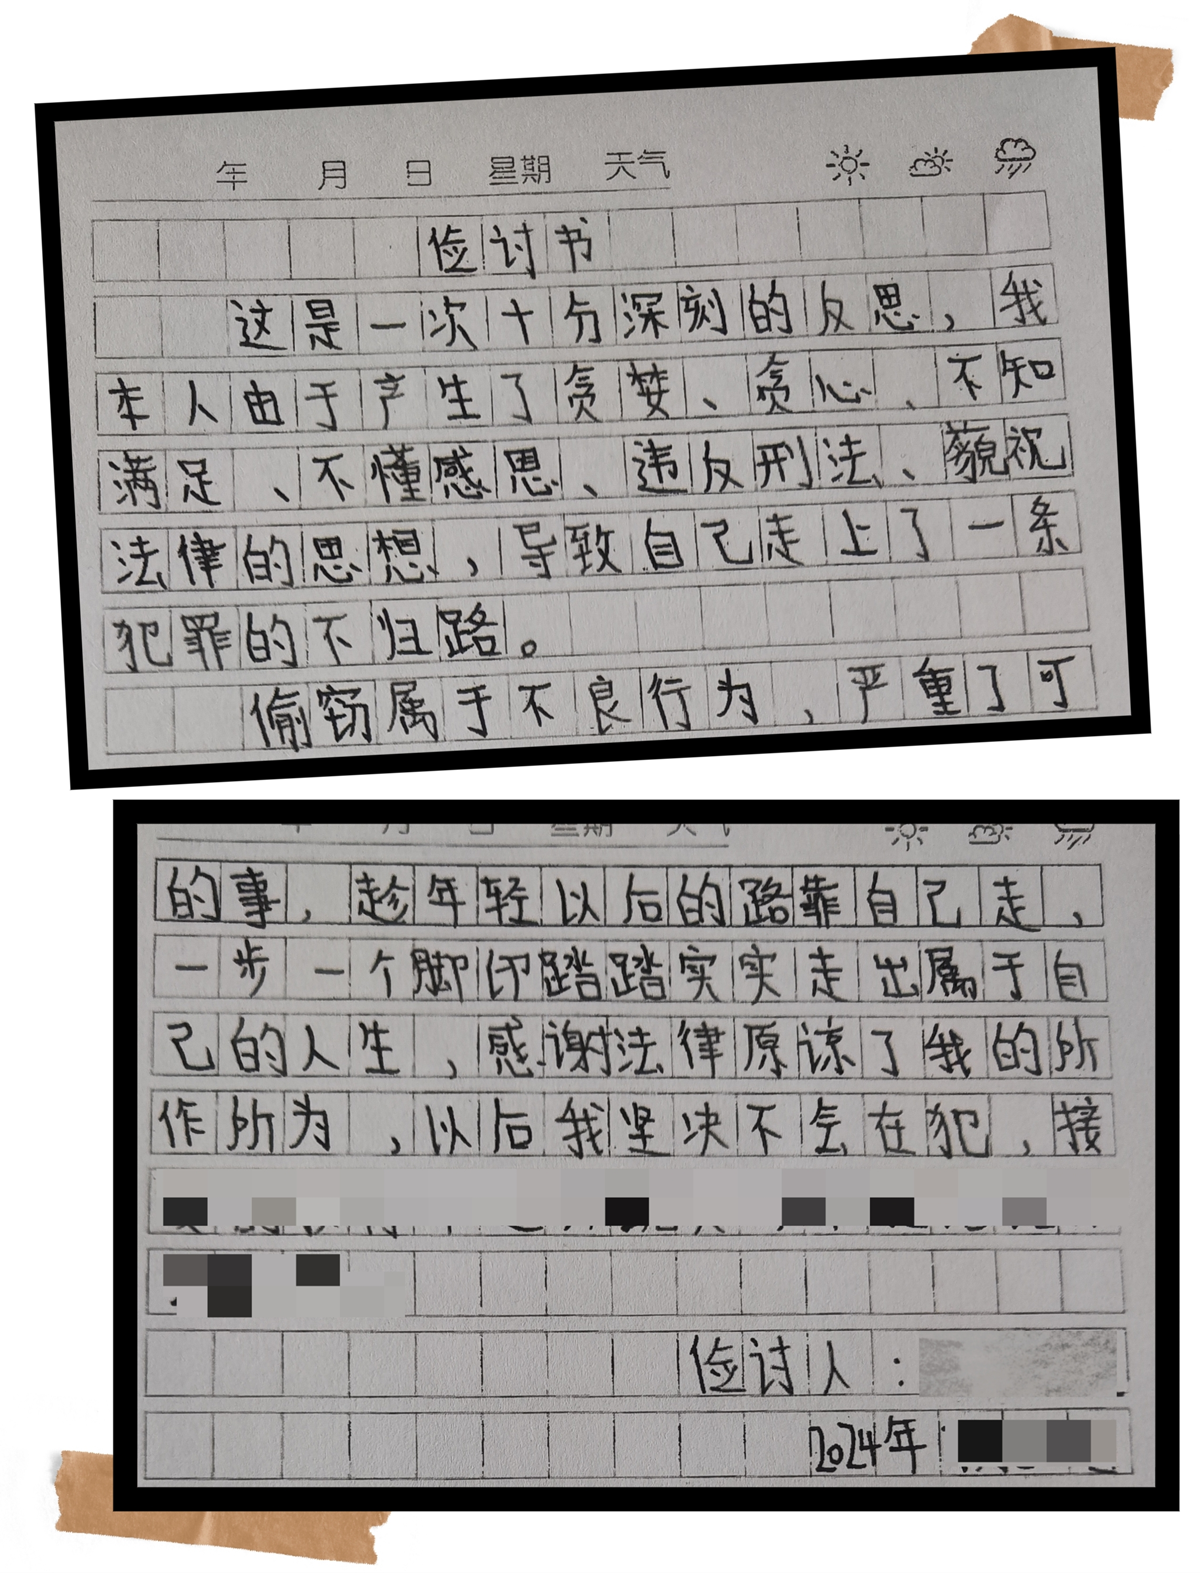 年 月 日 星期 天气
俭讨书
这是一次十分深刻的反思，我
本人由于产生了贪婪、贪心、不知
满足、不懂感恩、违反刑法、藐视
法律的思想，导致自己走上了一条
犯罪的不归路。
偷窃属于不良行为，严重了可
年 月 日 星期 天气
的事，趁年轻以后的路靠自己走，
一步一个脚印踏踏实实走出属于自
己的人生，感谢法律原谅了我的所
作所为，以后我坚决不会在犯，接
俭讨人：
2024年